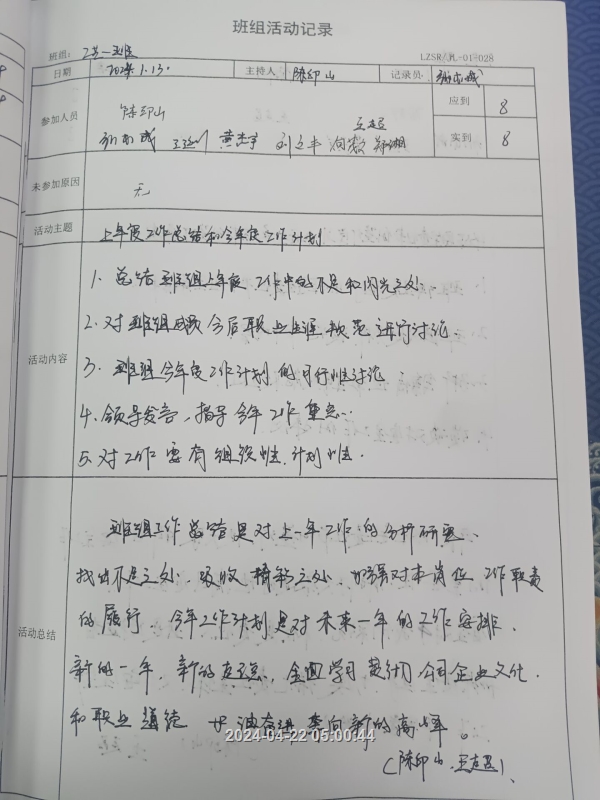 班组活动记录
班组: 工艺一班
LZSR/JL-01-028
日期 2024.1.13. 主持人 陈印山 记录员
参加人员 陈印山 应到 8
王志超
黄杰宇 刘立丰 实到 8
未参加原因 无
活动主题 上年度工作总结和今年度工作计划
活动内容
1. 总结班组上年度工作中的不足和闪光之处.
2. 对班组成员今后职业生涯规范进行讨论.
3. 班组今年度工作计划的可行性讨论.
4. 领导发言,指导今年工作重点.
5. 对工作要有组织性.计划性.
活动总结
班组工作总结是对上一年工作的分析研究、
找出不足之处、吸收精彩之处、加强对本岗位工作职责
的履行、今年工作计划是对未来一年的工作安排、
新的一年、新的起点、全面学习公司企业文化、
和职业道德 奔向新的高峰。
2024-04-22 05:00:44
(陈印山、王志超)、